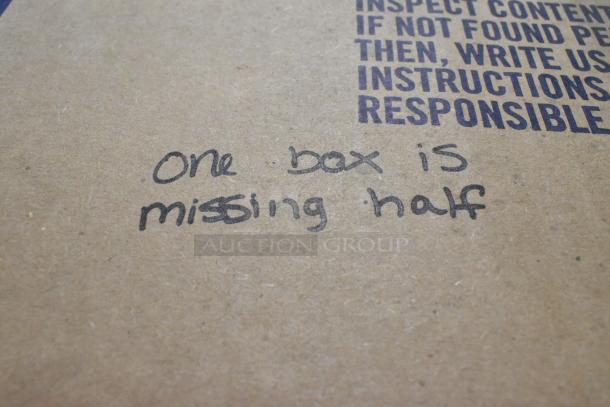 INSPECT CONTENT
IF NOT FOUND PE
THEN, WRITE US
INSTRUCTIONS
RESPONSIBLE
One box is
missing half
AUCTION GROUP